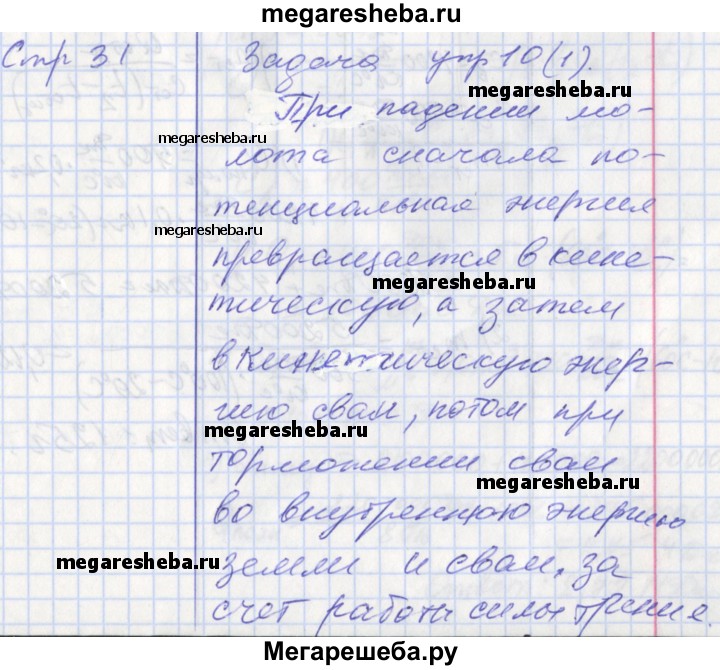 megaresheba.ru
Стр 31 Задача упр 10(1).
megaresheba.ru
При падении мо-
megaresheba.ru
лота сначала по-
тенциальная энергия
megaresheba.ru
превращается в кине-
megaresheba.ru
тическую, а затем
в кинетическую энер-
гию сваи, потом при
megaresheba.ru
торможении сваи
megaresheba.ru
во внутреннюю энергию
megaresheba.ru
земли и сваи, за
счет работы силы трения.
Мегарешеба.ру